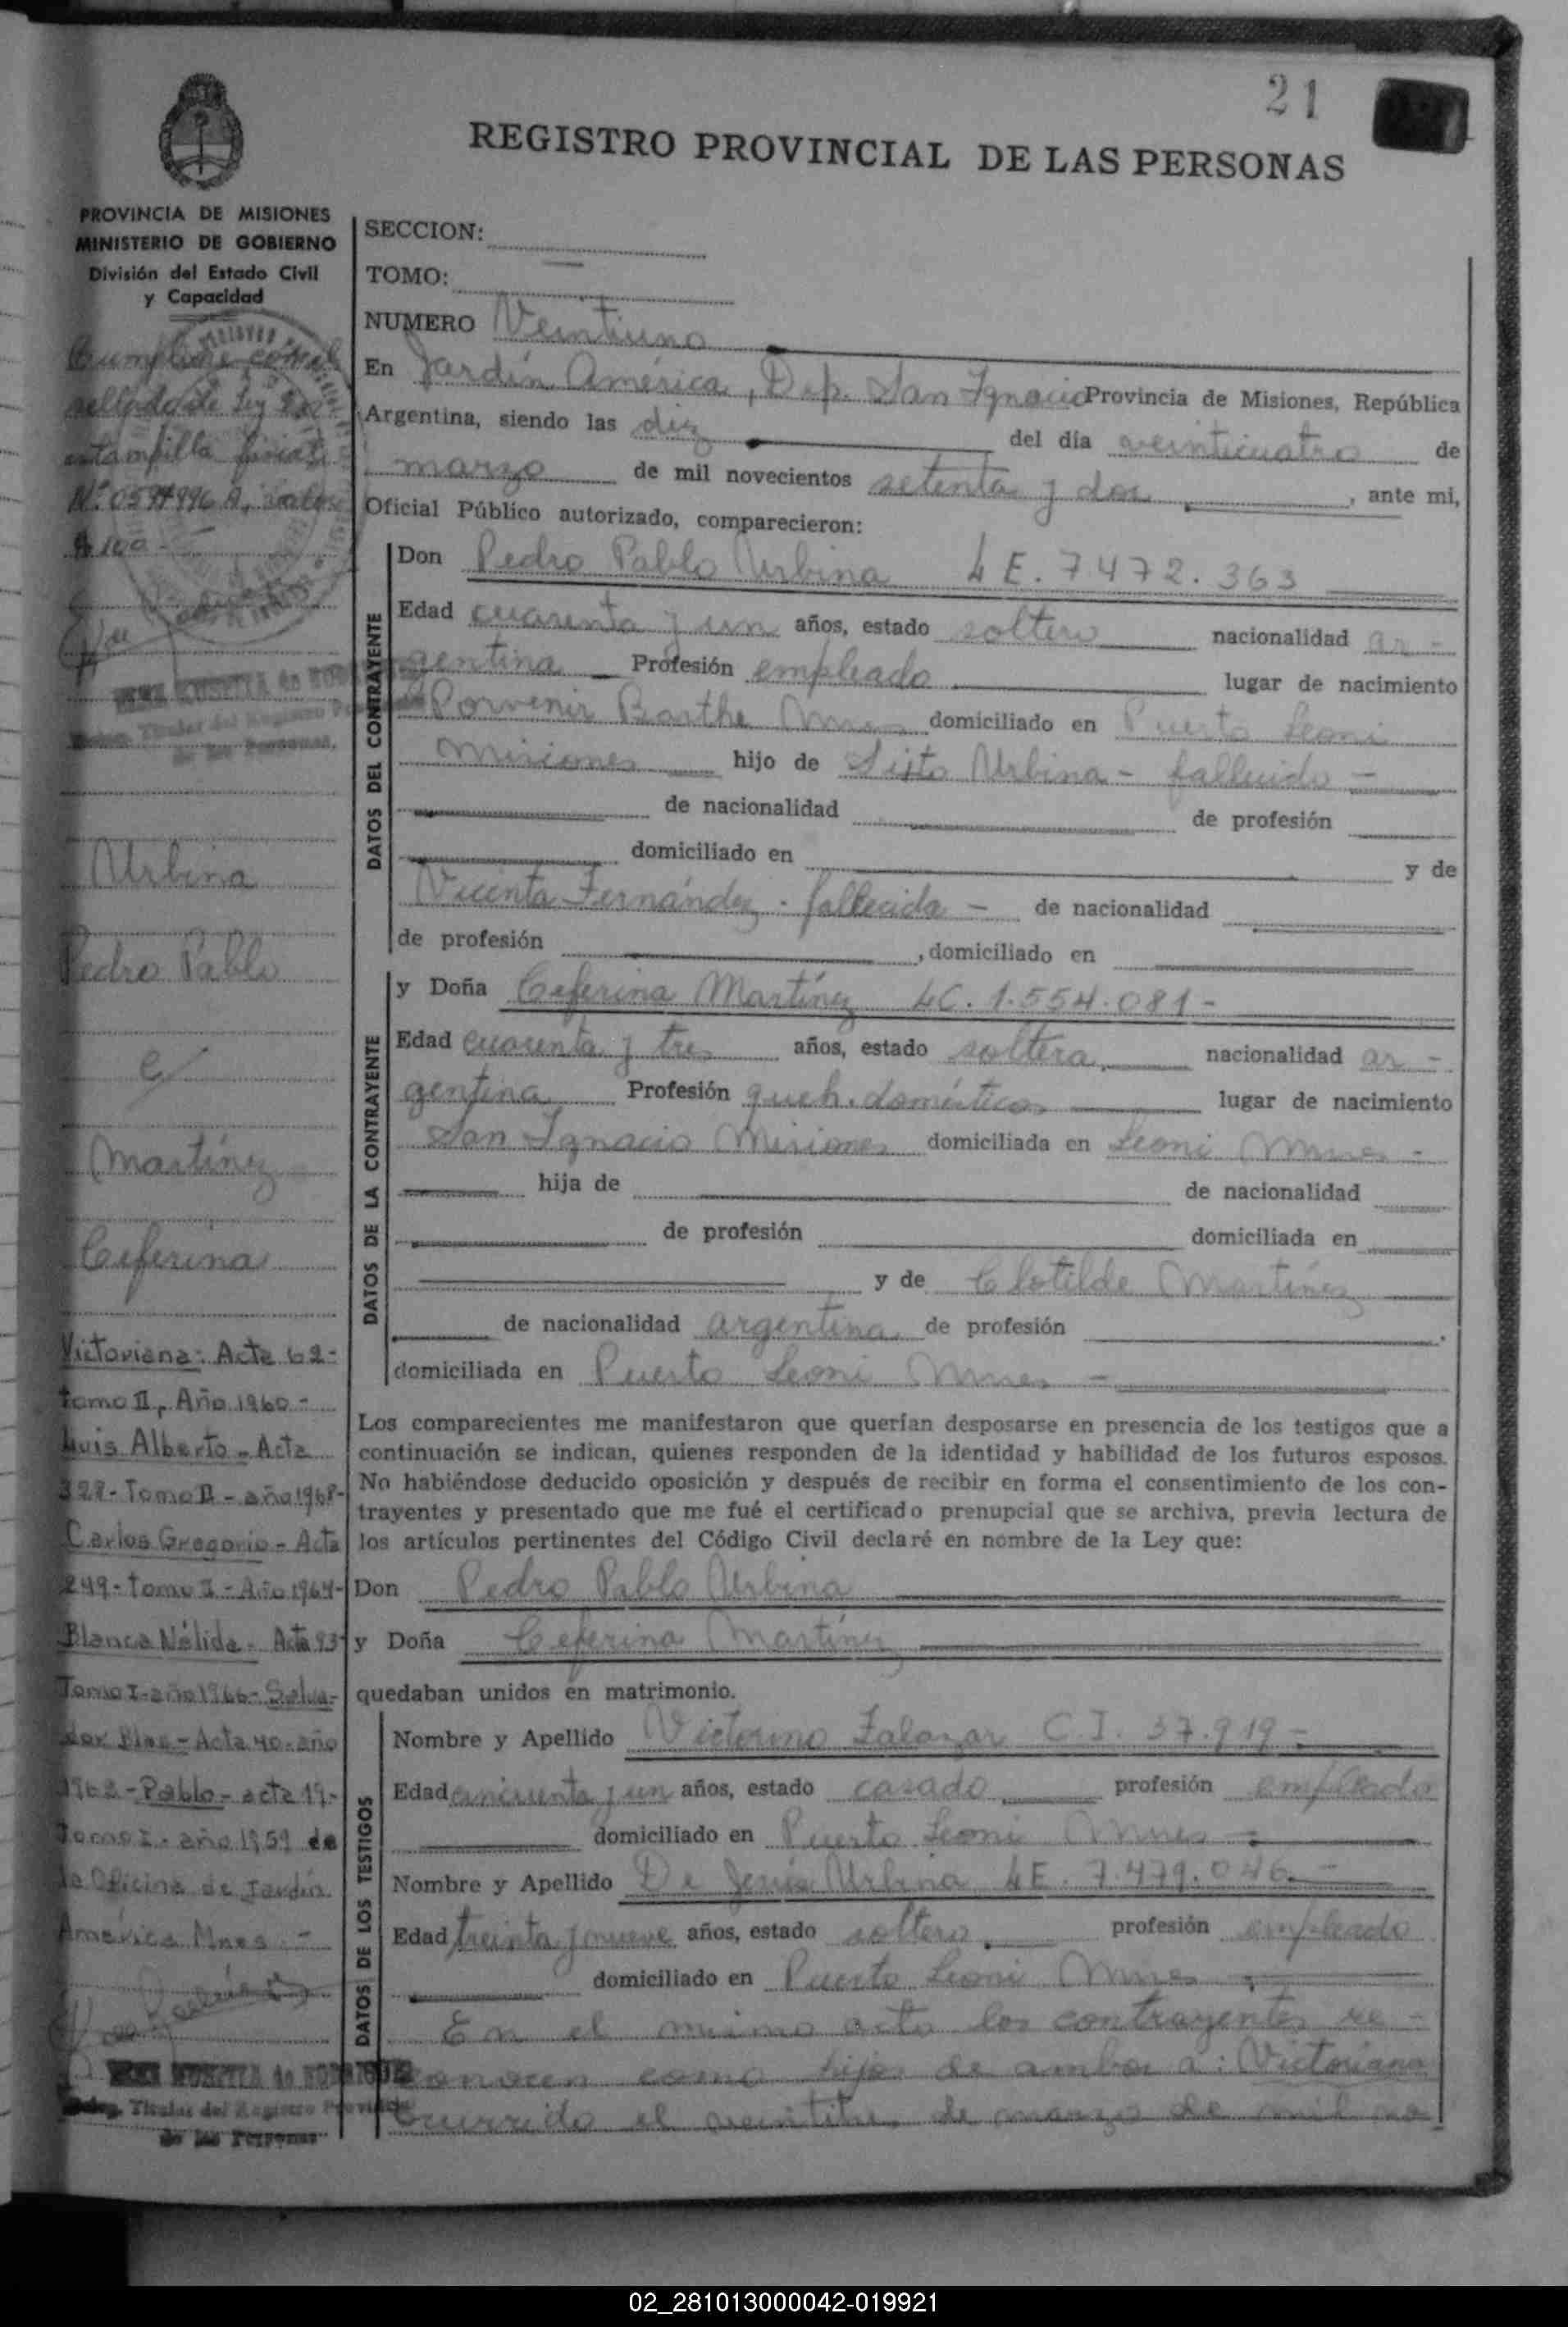 21
REGISTRO PROVINCIAL DE LAS PERSONAS
PROVINCIA DE MISIONES
MINISTERIO DE GOBIERNO
División del Estado Civil
y Capacidad
Cumplióse con el
sellado de ley
estampilla
Nº 0594996 A, valor
$ 100-
Urbina
Pedro Pablo
c/
Martínez
Ceferina
Victoriana: Acta 62-
tomo II, Año 1960-
Luis Alberto - Acta
328- Tomo II - año 1968-
Carlos Gregorio - Acta
249- tomo I - Año 1964-
Blanca Nélida - Acta 93-
Tomo I- año 1966- Salva-
dor Blas - Acta 40- año
1962 - Pablo - acta 19-
tomo I - año 1959 de
la Oficina de Jardín
América Mnes -
Titular del Registro Provincial
de las Personas
SECCION:
TOMO: —
NUMERO Veintiuno
En Jardín América, Dep. San Ignacio Provincia de Misiones, República
Argentina, siendo las diez del día veinticuatro de
marzo de mil novecientos setenta y dos, ante mi,
Oficial Público autorizado, comparecieron:
DATOS DEL CONTRAYENTE
Don Pedro Pablo Urbina LE. 7.472.363
Edad cuarenta y un años, estado soltero nacionalidad ar-
gentina Profesión empleado lugar de nacimiento
Porvenir Barthe Mnes domiciliado en Puerto Leoni
Misiones hijo de Sixto Urbina - fallecido -
de nacionalidad de profesión
domiciliado en y de
Vicenta Fernández - fallecida - de nacionalidad
de profesión , domiciliado en
DATOS DE LA CONTRAYENTE
y Doña Ceferina Martínez LC. 1.554.081-
Edad cuarenta y tres años, estado soltera nacionalidad ar-
gentina Profesión queh. domésticos lugar de nacimiento
San Ignacio Misiones domiciliada en Leoni Mnes -
hija de de nacionalidad
de profesión domiciliada en
y de Clotilde Martínez
de nacionalidad argentina de profesión
domiciliada en Puerto Leoni Mnes -
Los comparecientes me manifestaron que querían desposarse en presencia de los testigos que a
continuación se indican, quienes responden de la identidad y habilidad de los futuros esposos.
No habiéndose deducido oposición y después de recibir en forma el consentimiento de los con-
trayentes y presentado que me fué el certificado prenupcial que se archiva, previa lectura de
los artículos pertinentes del Código Civil declaré en nombre de la Ley que:
Don Pedro Pablo Urbina
y Doña Ceferina Martínez
quedaban unidos en matrimonio.
DATOS DE LOS TESTIGOS
Nombre y Apellido Victorino Zalazar C.I. 37.919-
Edad cincuenta y un años, estado casado profesión empleado
domiciliado en Puerto Leoni Mnes -
Nombre y Apellido De Jesús Urbina LE. 7.479.046.-
Edad treinta y nueve años, estado soltero profesión empleado
domiciliado en Puerto Leoni Mnes
En el mismo acto los contrayentes re-
conocen como hijos de ambos a: Victoriana
ocurrido el veintitrés de marzo de mil no
02_281013000042-019921